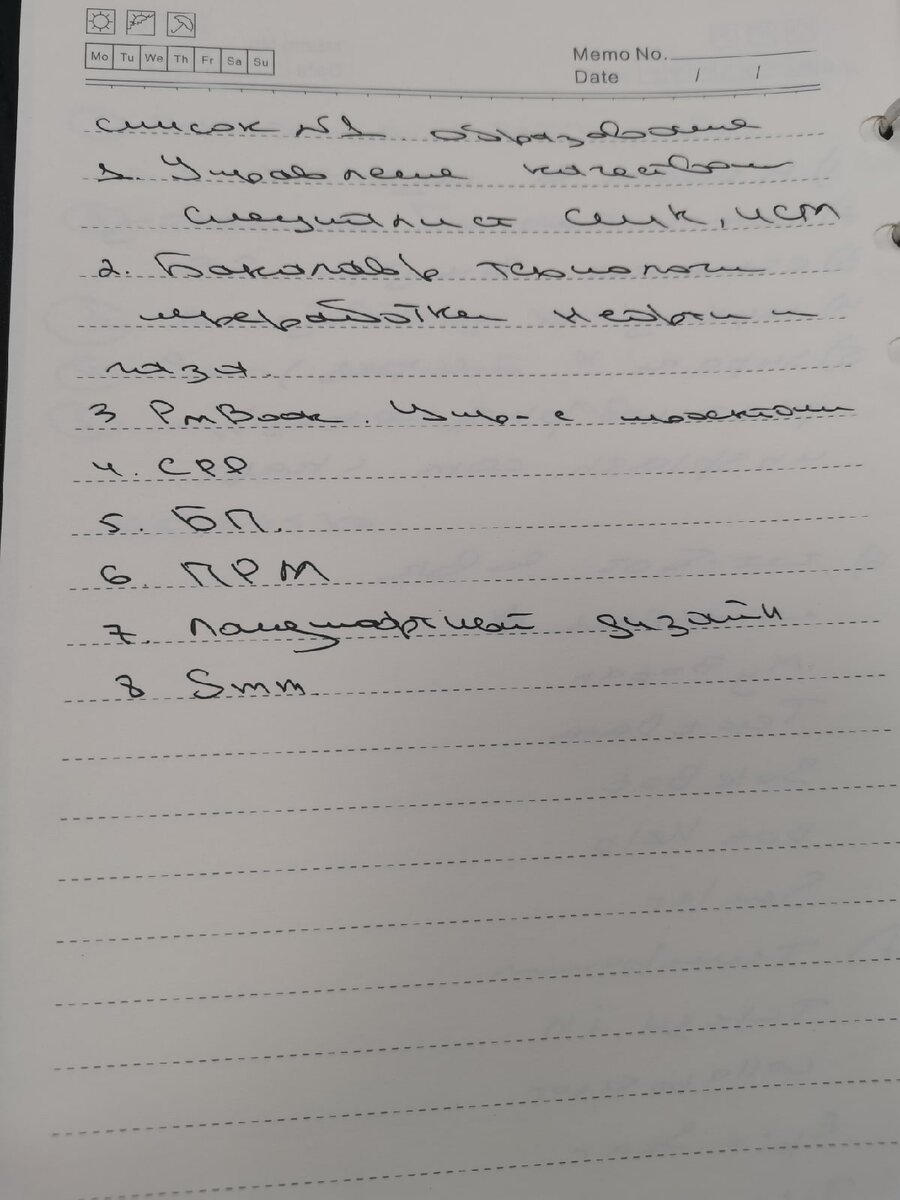 Mo Tu We Th Fr Sa Su
Memo No.
Date / /
список №1 образование
1. Управление качеством
специалист СМК, ИСМ
2. Бакалавр технологии
переработки нефти и
газа.
3 PmBook. Упр-е проектами
4. СРР
5. БП.
6. ПРМ
7. Ландшафтный дизайн
8 Smm